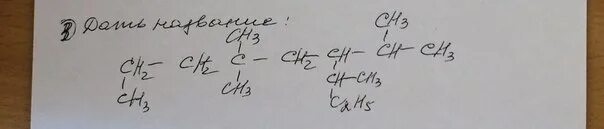 3) Дать название:
CH3 CH3
CH2 - CH2 C - CH2 - CH - CH - CH3
CH3 CH3 CH - CH3
C2H5